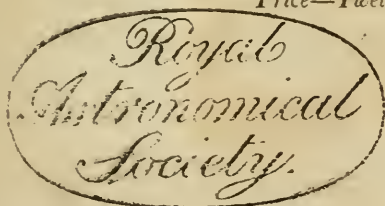 Price—
Royal
Astronomical
Society.